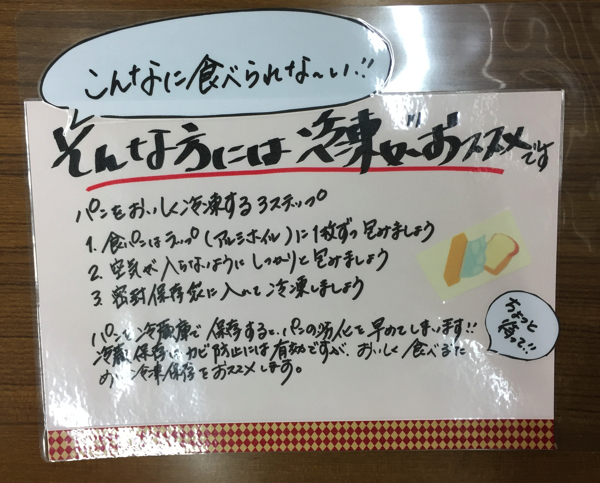 こんなに食べられな〜い!!
そんな方には冷凍がおススメです
パンをおいしく冷凍する3ステップ
1. 食パンはラップ(アルミホイル)に1枚ずつ包みましょう
2. 空気が入らないようにしっかりと包みましょう
3. 密封保存袋に入れて冷凍しましょう
ちょっと待って!!
パンを冷蔵庫で保存すると、パンの劣化を早めてしまいます!!
冷蔵保存はカビ防止には有効ですが、おいしく食べるた
め 冷凍保存をおススメします。